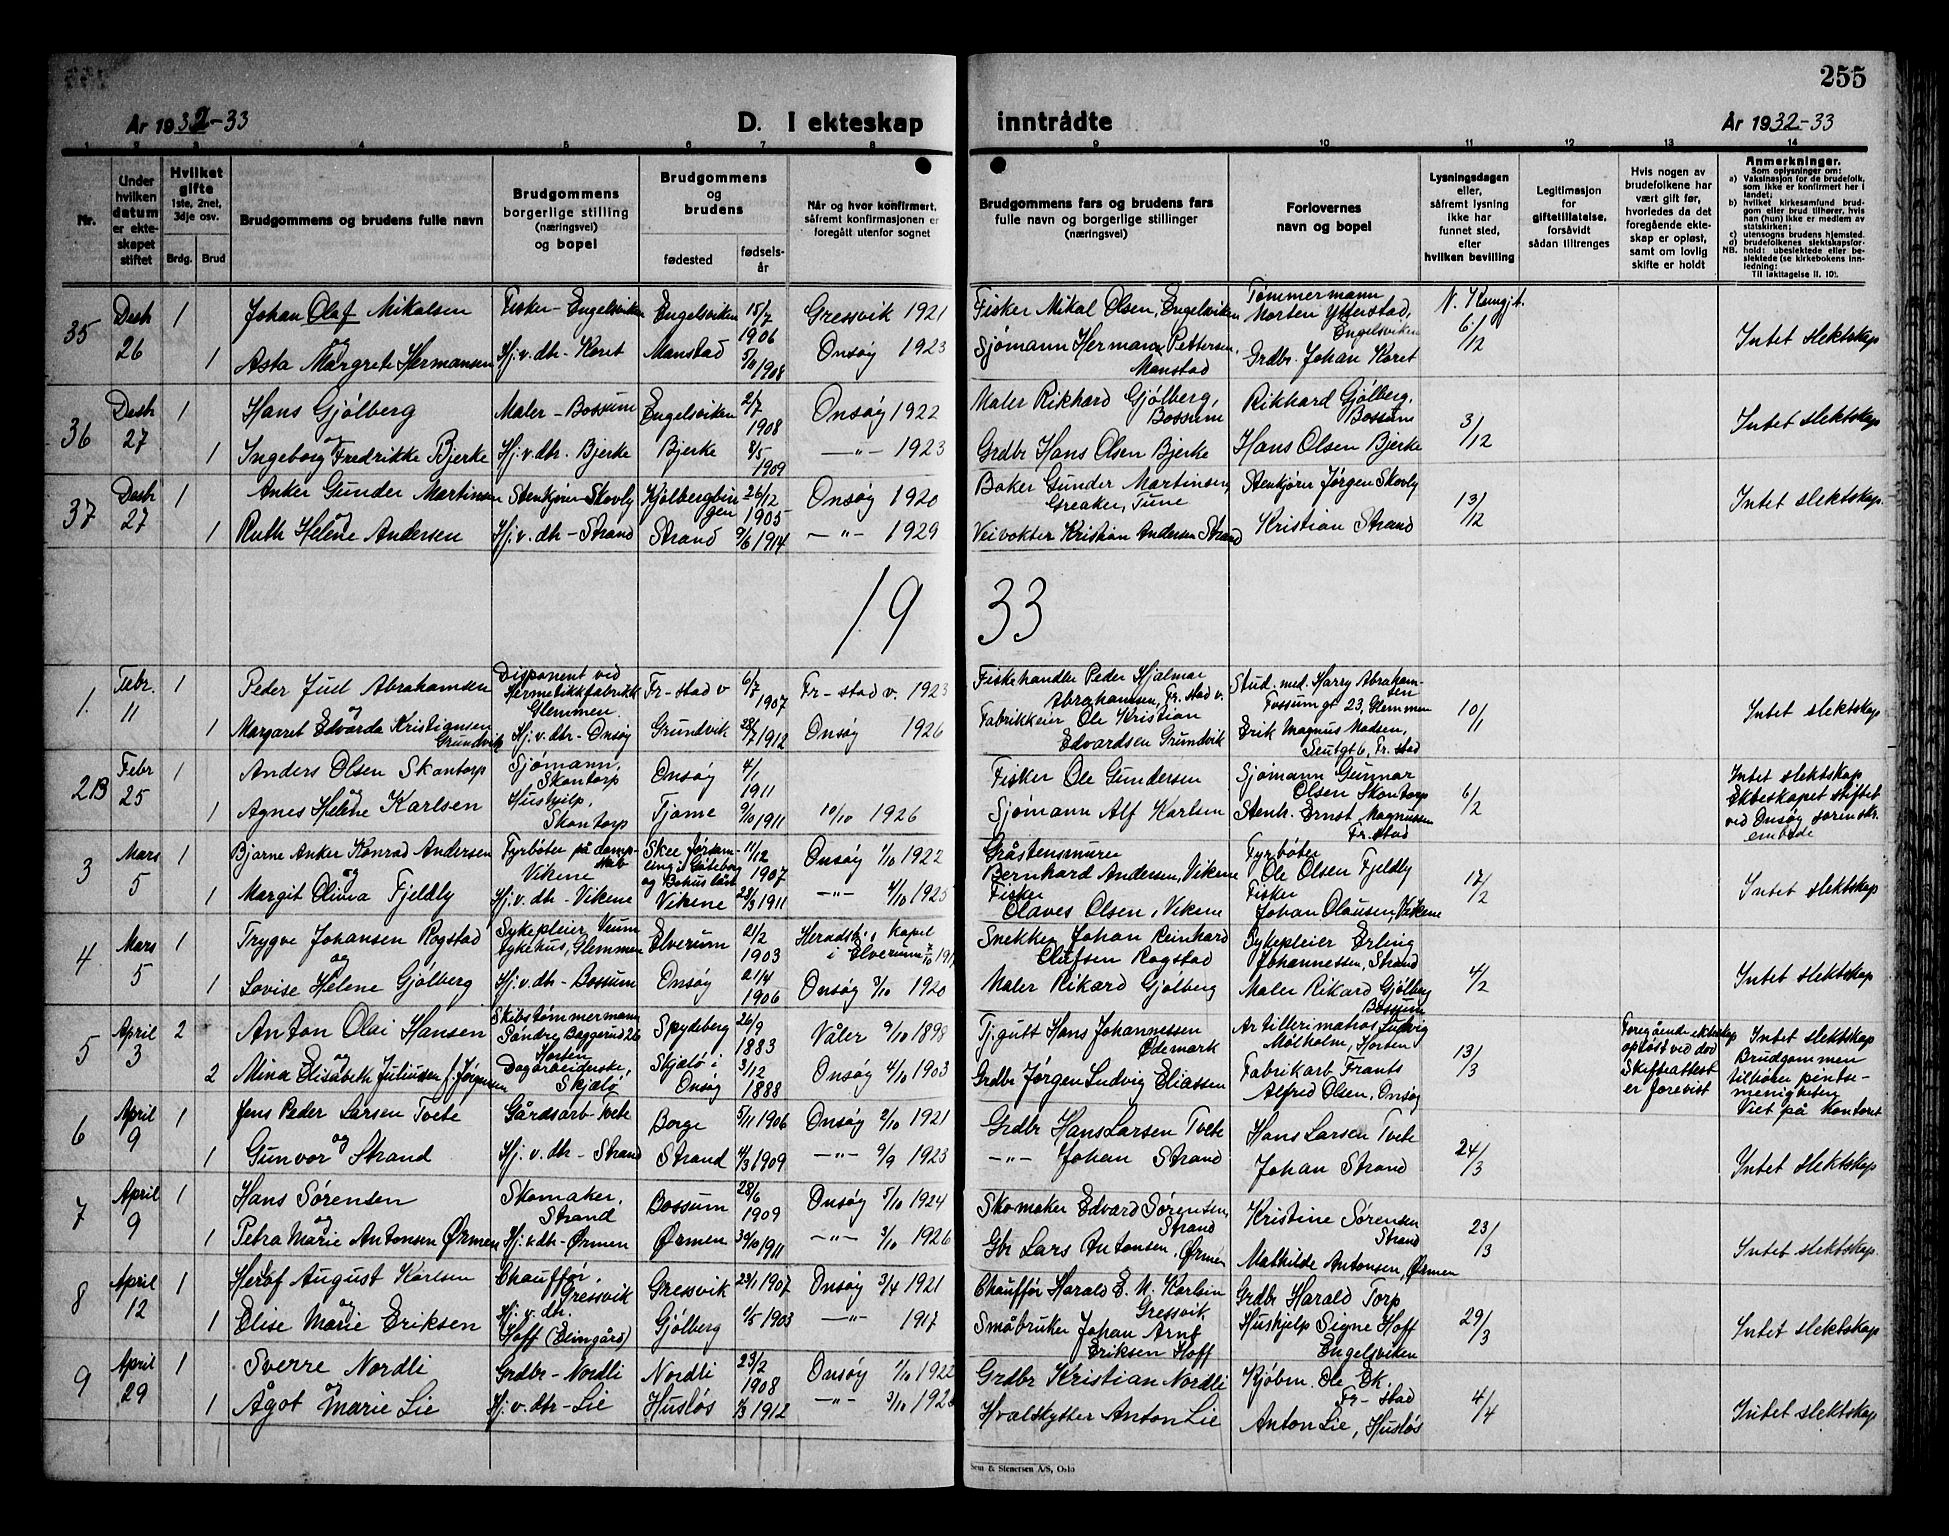 255
År 1932-33
D. I ekteskap
inntrådte
År 1932-33
1 2 3 4 5 6 7 8 9 10 11 12 13 14
Nr.
Under hvilken datum er ekteskapet stiftet
Hvilket gifte 1ste, 2net, 3dje osv.
Brdg. Brud
Brudgommens og brudens fulle navn
Brudgommens borgerlige stilling (næringsvei) og bopel
Brudgommens og brudens
fødested
fødselsår
Når og hvor konfirmert, såfremt konfirmasjonen er foregått utenfor sognet
Brudgommens fars og brudens fars fulle navn og borgerlige stillinger (næringsvei)
Forlovernes navn og bopel
Lysningsdagen eller, såfremt lysning ikke har funnet sted, efter hvilken bevilling
Legitimasjon for giftetillatelse, forsåvidt sådan tiltrenges
Hvis nogen av brudefolkene har vært gift før, hvorledes da det foregående ekteskap er opløst, samt om lovlig skifte er holdt
Anmerkninger.
Som oplysninger om:
a) Vaksinasjon for de brudefolk, som ikke er konfirmert her i landet;
b) hvilket kirkesamfund brudgom eller brud tilhører, hvis han (hun) ikke er medlem av statskirken;
c) utensogns brudens hjemsted.
d) brudefolkenes slektskapsforhold: ubeslektede eller beslektede (se kirkebokens innledning:
NB. Til iakttagelse II. 10).
35 Desb 26 1 Johan Olaf Mikalsen Fisker - Engelsviken Engelsviken 15/7 1906 Gressvik 1921 Fisker Mikal Olsen, Engelsviken Tømmermann Morten Ytterstad, Engelsviken 6/12 Intet slektskap
og
1 Asta Margrete Hermansen Hj.v.dtr - Karet Manstad 1908 Onsøy 1923 Sjømann Herman Pettersen, Manstad Grdbr. Johan Karet
36 Desb 27 1 Hans Gjølberg Maler - Bossum Engelsviken 2/7 1908 Onsøy 1922 Maler Rikhard Gjølberg, Bossum Rikhard Gjølberg, Bossum 3/12 Intet slektskap
og
1 Ingeborg Fredrikke Bjerke Hj.v.dtr. Bjerke Bjerke 8/5 1909 -"- 1923 Grdbr Hans Olsen Bjerke Hans Olsen Bjerke
37 Desb 27 1 Anker Gunder Martinsen Stenkjører - Skovly Kjølbergbingen 26/12 1905 Onsøy 1920 Baker Gunder Martinsen, Greaker, Tune Stenkjører Jørgen Skovly 13/12 Intet slektskap.
og
1 Ruth Helene Andersen Hj.v.dtr - Strand Strand 9/6 1914 -"- 1929 Veivokter Kristian Andersen Strand Kristian Strand
19 33
1. Febr. 11 1 Peder Juel Abrahamsen Disponent ved Hermetikkfabrikk Glemmen. Fr-stad v 6/7 1907 Fr-stad v. 1923 Fiskehandler Peder Hjalmar Abrahamsen, Fr.stad v. Stud. med. Harry Abrahamsen Fossumgt 23, Glemmen 10/1 Intet slektskap
og
1 Margaret Edvarda Kristiansen Grundvik Hj.v.dtr - Onsøy Grundvik 28/7 1912 Onsøy 1926 Fabrikkeier Ole Kristian Edvardsen Grundvik Erik Magnus Madsen, Seutgt 6, Fr.stad
2B Febr 25 1 Anders Olsen Skantorp Sjømann, Skantorp Onsøy 4/1 1911 Fisker Ole Gundersen Sjømann Gunnar Olsen Skantorp 6/2 Intet slektskap Ekteskapet stiftet ved Onsøy sorenskr. embede
og
1 Agnes Helene Karlsen Hushjelp, Skantorp Tjøme 9/10 1911 10/10 1926 Sjømann Alf Karlsen Stenh. Ernst Magnussen Fr.stad
3 Mars 5 1 Bjarne Anker Konrad Andersen Fyrbøter på dampskib Vikene Skee forsamling i Göteborg og Bohus län 11/12 1907 Onsøy 1/10 1922 Gråstensmurer Bernhard Andersen, Vikene Fyrbøter Ole Olsen Fjeldly 17/2 Intet slektskap
og
1 Margit Olivia Fjeldly Hj.v.dtr - Vikene Vikene 28/3 1911 -"- 4/10 1925 Fisker Olaves Olsen, Vikene Fisker Johan Olausen, Vikene
4 Mars 5 1 Trygve Johansen Rogstad Sykepleier, Veum sykehus, Glemmen Elverum 21/2 1903 kapel i Elverum Snekker Johan Reinhard Olafsen Rogstad Sykepleier Erling Johannessen, Strand 4/2 Intet slektskap
og
1 Lovise Helene Gjølberg Hj.v.dtr - Bossum Onsøy 21/4 1906 Onsøy 3/10 1920 Maler Rikard Gjølberg Maler Rikard Gjølberg Bossum
5 April 3 2 Anton Olai Hansen Skibstømmermann Søndre Baggerud 26 Horten Spydeberg 26/9 1883 Våler 9/10 1898 Tj.gutt Hans Johannessen Ødemark Artillerimatros Ludvig Mølholm, Horten 13/3 Foregående ekteskap opløst ved død Skifteattest er forevist Intet slektskap Brudgommen tilhører pinsemenigheten Viet på kontoret
og
2 Mina Elisabeth Juliusen f. Jørgensen Dagarbeiderske, Skjælø Skjælø i Onsøy 3/12 1888 Onsøy 4/10 1903 Grdbr Jørgen Ludvig Eliassen Fabrikarb Frants Alfred Olsen, Onsøy
6 April 9 1 Jens Peder Larsen Tvete Gårdsarb - Tvete Borge 5/11 1906 Onsøy 2/10 1921 Grdbr Hans Larsen Tvete Hans Larsen Tvete 24/3 Intet slektskap
og
1 Gunvor Strand Hj.v.dtr - Strand Strand 4/3 1909 -"- 9/9 1923 -"- Johan Strand Johan Strand
7 April 9 1 Hans Sørensen Skomaker, Strand Bossum 28/6 1909 Onsøy 5/10 1924 Skomaker Edvard Sørensen, Strand Kristine Sørensen Strand 23/3 Intet slektskap.
og
1 Petra Marie Antonsen Ørmen Hj.v.dtr - Ørmen Ørmen 30/10 1911 -"- 3/10 1926 Gbr Lars Antonsen, Ørmen Mathilde Antonsen, Ørmen
8 April 12 1 August Karlsen Chauffør, Gressvik Gressvik 23/1 1907 Onsøy 3/4 1921 Chauffør Harald E. M. Karlsen Gressvik Grdbr Harald Torp 29/3 Intet slektskap
og
1 Elise Marie Eriksen Hj.v.dtr. Hoff (Elingård) Gjølberg 1/5 1903 -"- 1917 Småbruker Johan Arnt Eriksen Hoff Hushjelp Signe Hoff Engelsviken
9 April 29 1 Sverre Nordli Grdbr - Nordli Nordli 23/2 1908 Onsøy 1/10 1922 Grdbr Kristian Nordli Kjøbm. Ole Ek. Fr-stad 4/4 Intet slektskap
og
1 Ågot Marie Lie Hj.v.dtr - Lie Husløs 1912 -"- Hvalskytter Anton Lie Anton Lie, Husløs
Sem & Stenersen A/S, Oslo